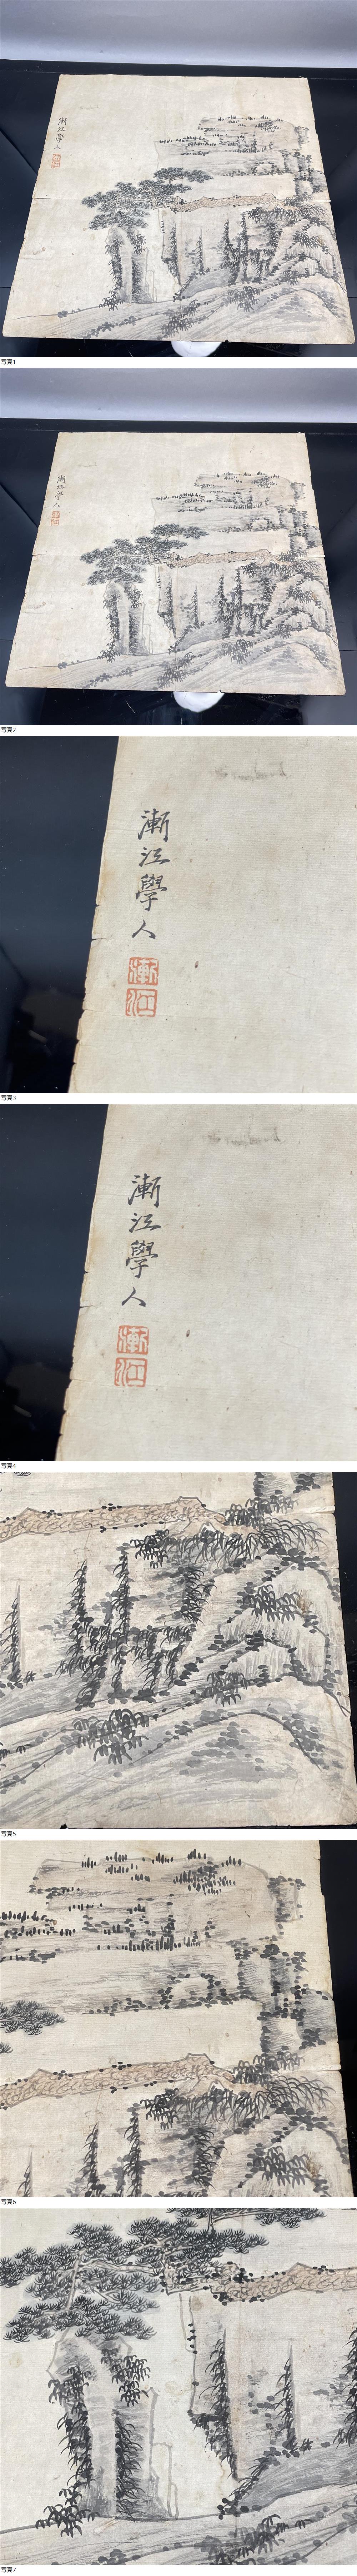 漸江學人
漸江
写真1
漸江學人
漸江
写真2
漸江學人
漸江
写真3
漸江學人
漸江
写真4
写真5
写真6
写真7